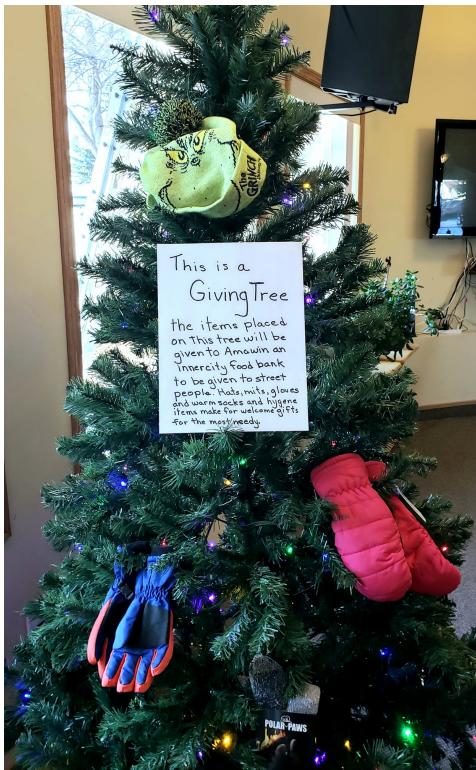 The
GRINCH
This is a
Giving Tree
the items placed
on This tree will be
given to Amawin an
Innercity food bank
to be given to street
people. Hats, mits, gloves
and warm socks and hygene
items make for welcome gifts
for the most needy.
POLAR PAWS